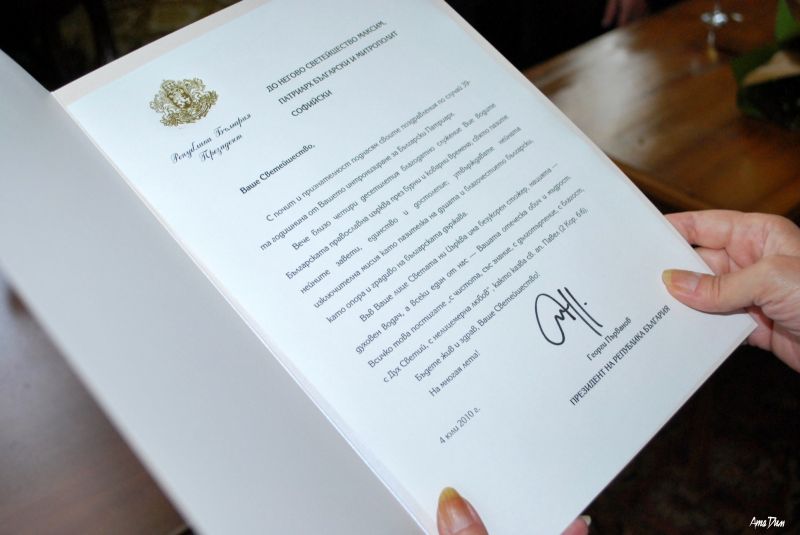 Република България
Президент
ДО НЕГОВО СВЕТЕЙШЕСТВО МАКСИМ,
ПАТРИАРХ БЪЛГАРСКИ И МИТРОПОЛИТ
СОФИЙСКИ
Ваше Светейшество,
С почит и признателност поднасям своите поздравления по случай 39-
та годишнина от Вашето интронизиране за Български Патриарх.
Вече близо четири десетилетия благодатно служение Вие водите
Българската православна църква през бурни и коварни времена; свято пазите
нейните завети, единство и достолепие; утвърждавате нейната
изключителна мисия като пазителка на душата и благочестието български,
като опора и градиво на българската държава.
Във Ваше лице Светата ни Църква има безукорен стожер, нацията —
духовен водач, а всеки един от нас — Вашата отеческа обич и мъдрост.
Всичко това постигате „с чистота, със знание, с дълготърпение, с благост,
с Дух Светий, с нелицемерна любов“ както казва св. ап. Павел (2 Кор. 6:6).
Бъдете жив и здрав, Ваше Светейшество!
На многая лета!
Георги Първанов
ПРЕЗИДЕНТ НА РЕПУБЛИКА БЪЛГАРИЯ
4 юли 2010 г.